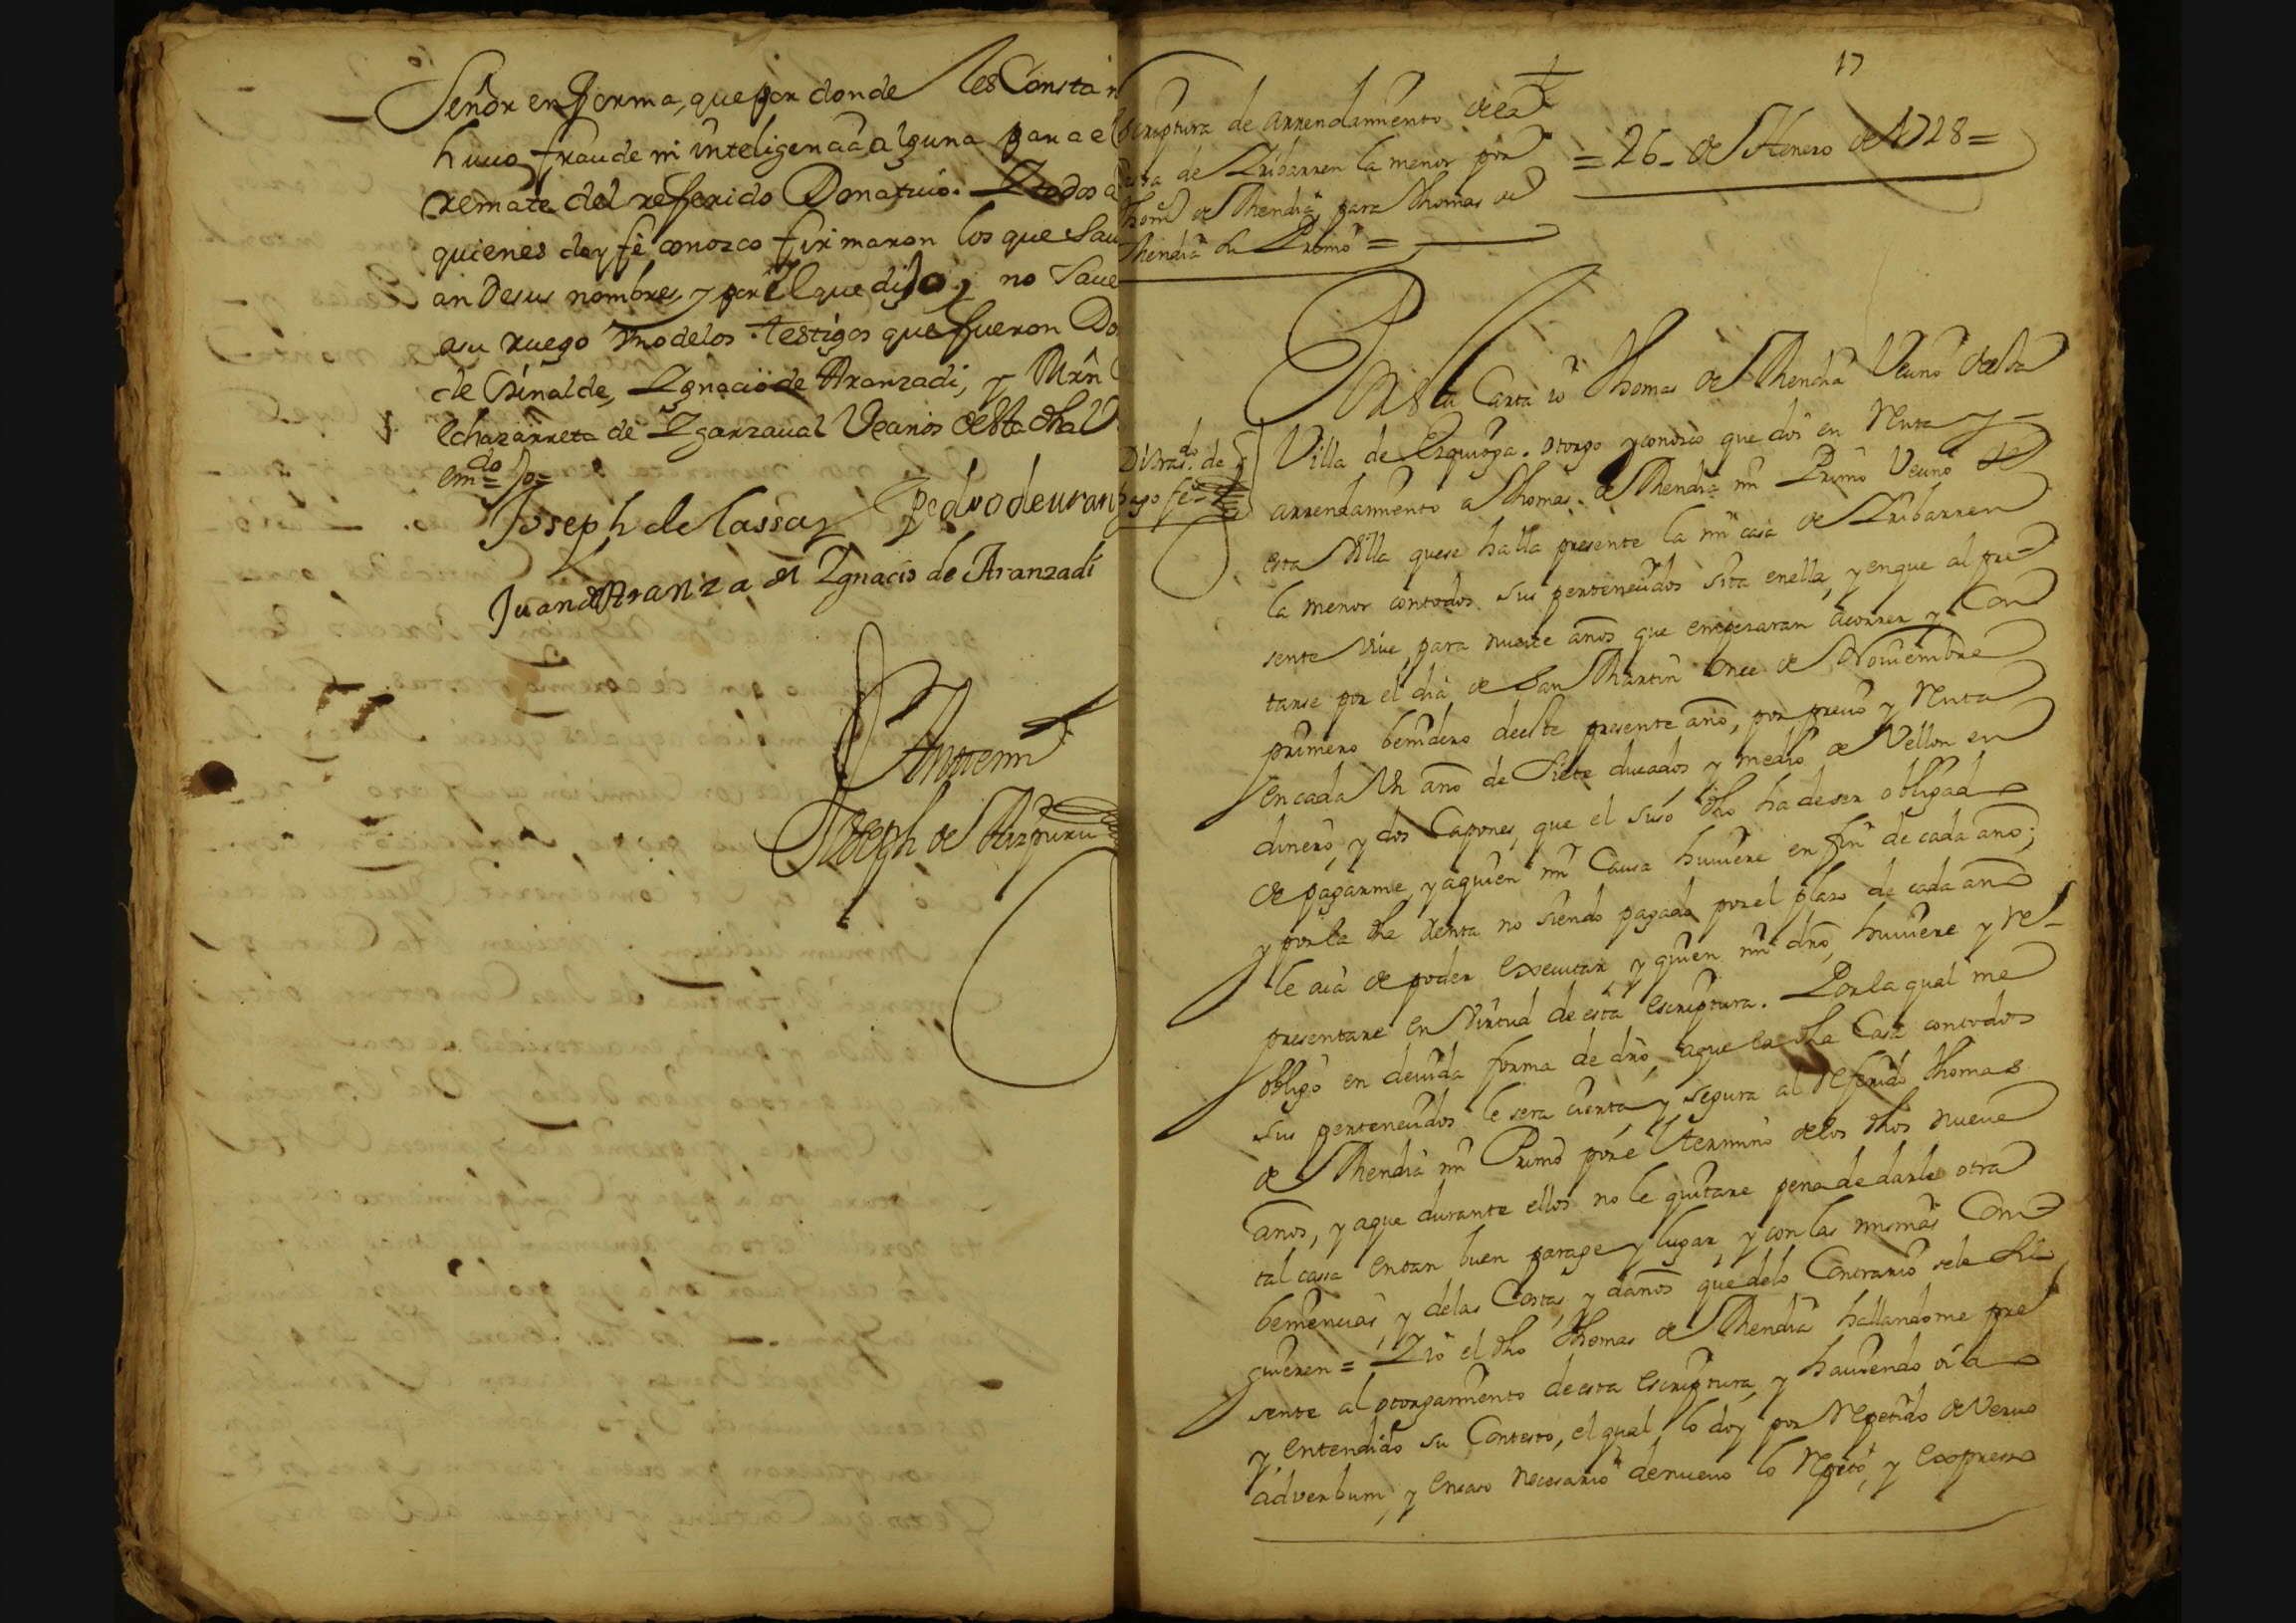 Señor en forma, que por donde les Consta n
huuo fraude ni inteligencia alguna para el
remate del referido Donatiuo. Y todos a
quienes doy feé conozco firmaron los que sau
an de sus nombres, y por el que dijo, no saue
a su ruego vno de los testigos que fueron Do
de Ignacio de Aranzadi, y Mrn
echazarreta de Ygarzaual Veçinos de esta dha V
em.do jo=
Joseph de Lassa
Pedro de uran
Juan de Aranzadi
Ygnacio de Aranzadi
Ante mi
Joseph de Aizpuru
17
Scriptura de arrendamiento de la
cassa de Yribarren la menor por
Thom.s de Mendia, para Thomas de
Mendia su Primo =
= 26 - de Henero de 1728 =
En esta Carta io Thomas de Mendia Veçino de esta
Villa de Ezquioga. otorgo y conozco que doi en Renta y
arrendamiento a Thomas de Mendia mi Primo Veçino de
esta Villa que se halla presente la mi casa de Yribarren
la menor con todos sus perteneçidos sita en ella, y en que al pre
sente Viue, para nueue años que empezaran a correr y Con
tarse por el dia de San Martin Onze de Nouiembre
primero benidero de este presente año, por preçio y Renta
en cada Vn año de Siete ducados y medio de Vellon en
dinero, y dos Capones, que el suso dho ha de ser obligado
de pagarme, y a quien mi Causa huuiere en fin de cada año;
y por la dha Renta no siendo pagada por el plazo de cada año
le aia de poder executar, y quien mi dro, huuiere y re-
presentare en Virtud de esta escriptura. Por la qual me
obligo en deuida forma de dro, a que la dha Casa con todos
sus perteneçidos le sera çierta, y segura al Referido Thomas
de Mendia mi Primo por el termino de los dhos nueue
años, y a que durante ellos no le quitare pena de darle otra
tal cassa en tan buen parage y lugar, y con las mismas Com
beniençias, y de las Costas, y daños que de lo Contrario se le si
guieren = Y io el dho Thomas de Mendia hallandome pre
sente al otorgamiento de esta escriptura, y hauiendo oido
y entendido su Contexto, el qual lo doy por Repetido de Veruo
ad verbum, y en caso neçesario de nueuo lo Repito, y expreso